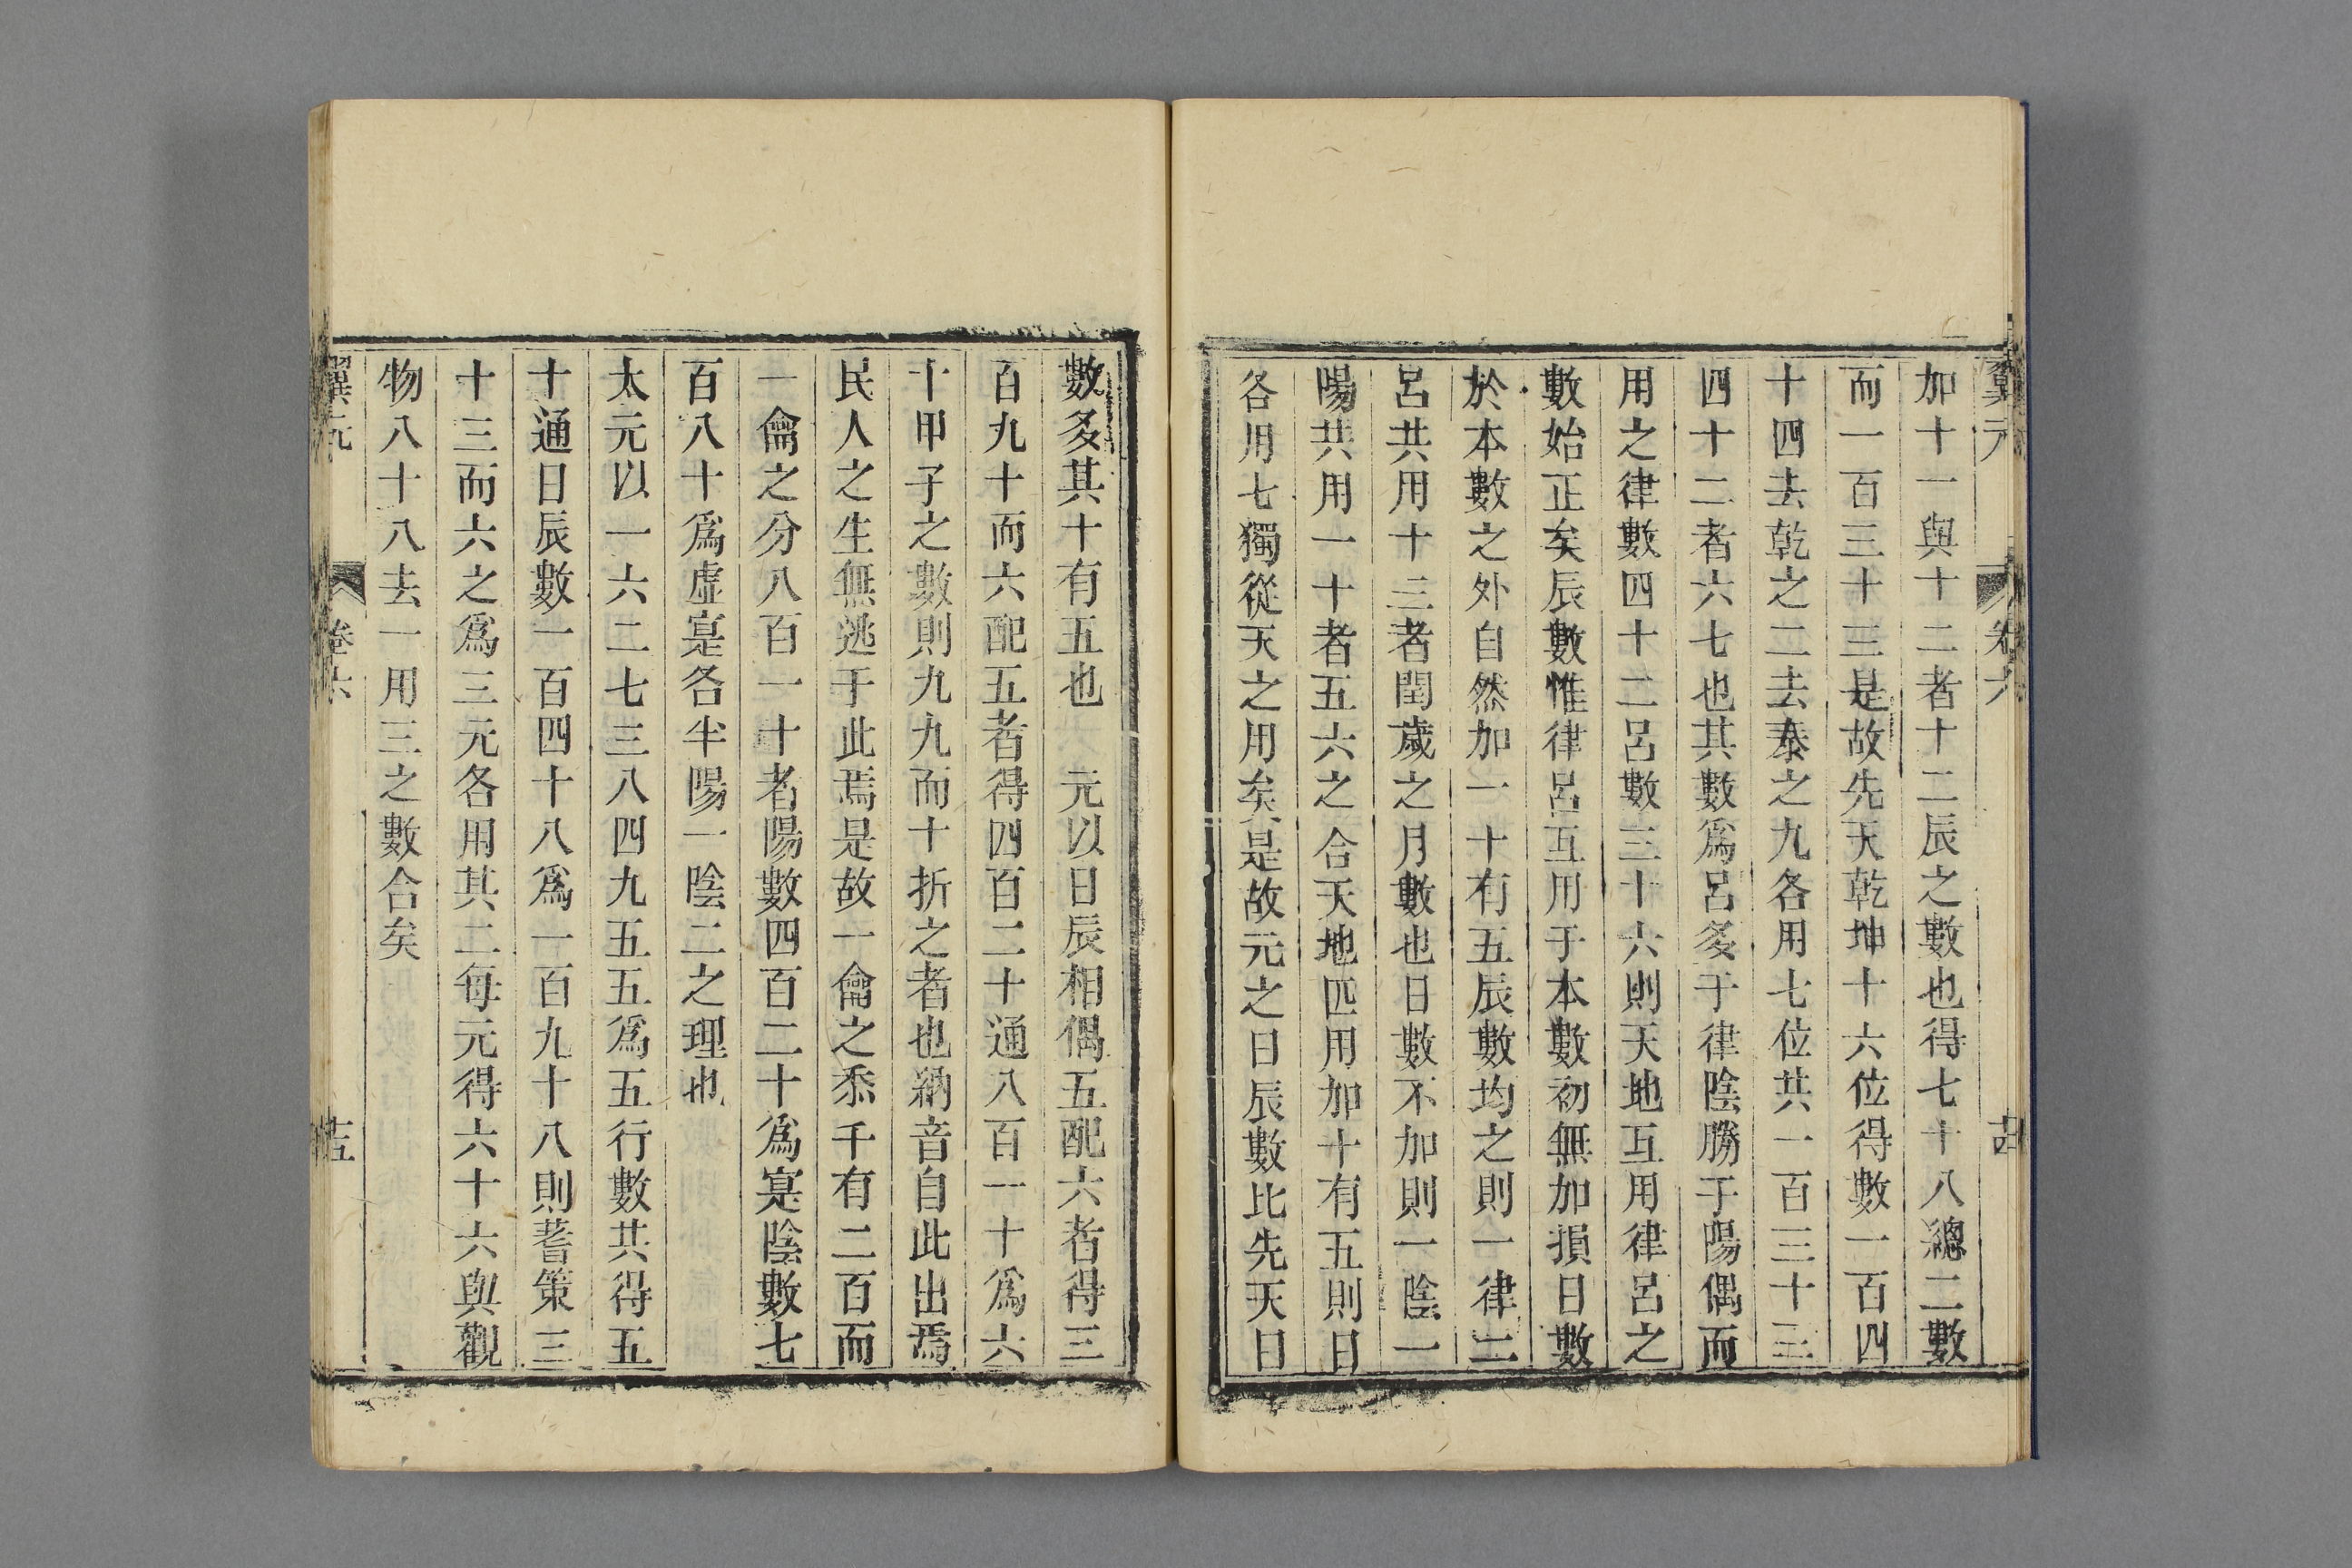 翼元
卷六
加十一與十二者十二辰之數也得七十八總二數
而一百三十三是故先天乾坤十六位得數一百四
十四去乾之二去泰之九各用七位共一百三十三
四十二者六七也其數爲呂多于律陰勝于陽偶而
用之律數四十二呂數三十六則天地互用律呂之
數始正矣辰數惟律呂互用于本數初無加損日數
於本數之外自然加一十有五辰數均之則一律二
呂共用十三者閏歲之月數也日數不加則一陰一
陽共用一十者五六之合天地匹用加十有五則日
各用七獨從天之用矣是故元之日辰數比先天日
數多其十有五也　元以日辰相偶五配六者得三
百九十而六配五者得四百二十通八百一十爲六
十甲子之數則九九而十折之者也納音自此出焉
民人之生無逃于此焉是故一龠之黍千有二百而
一龠之分八百一十者陽數四百二十爲寔陰數七
百八十爲虛寔各半陽一陰二之理也
太元以一六二七三八四九五五爲五行數共得五
十通日辰數一百四十八爲一百九十八則蓍策三
十三而六之爲三元各用其二每元得六十六與觀
物八十八去一用三之數合矣
翼元
卷六